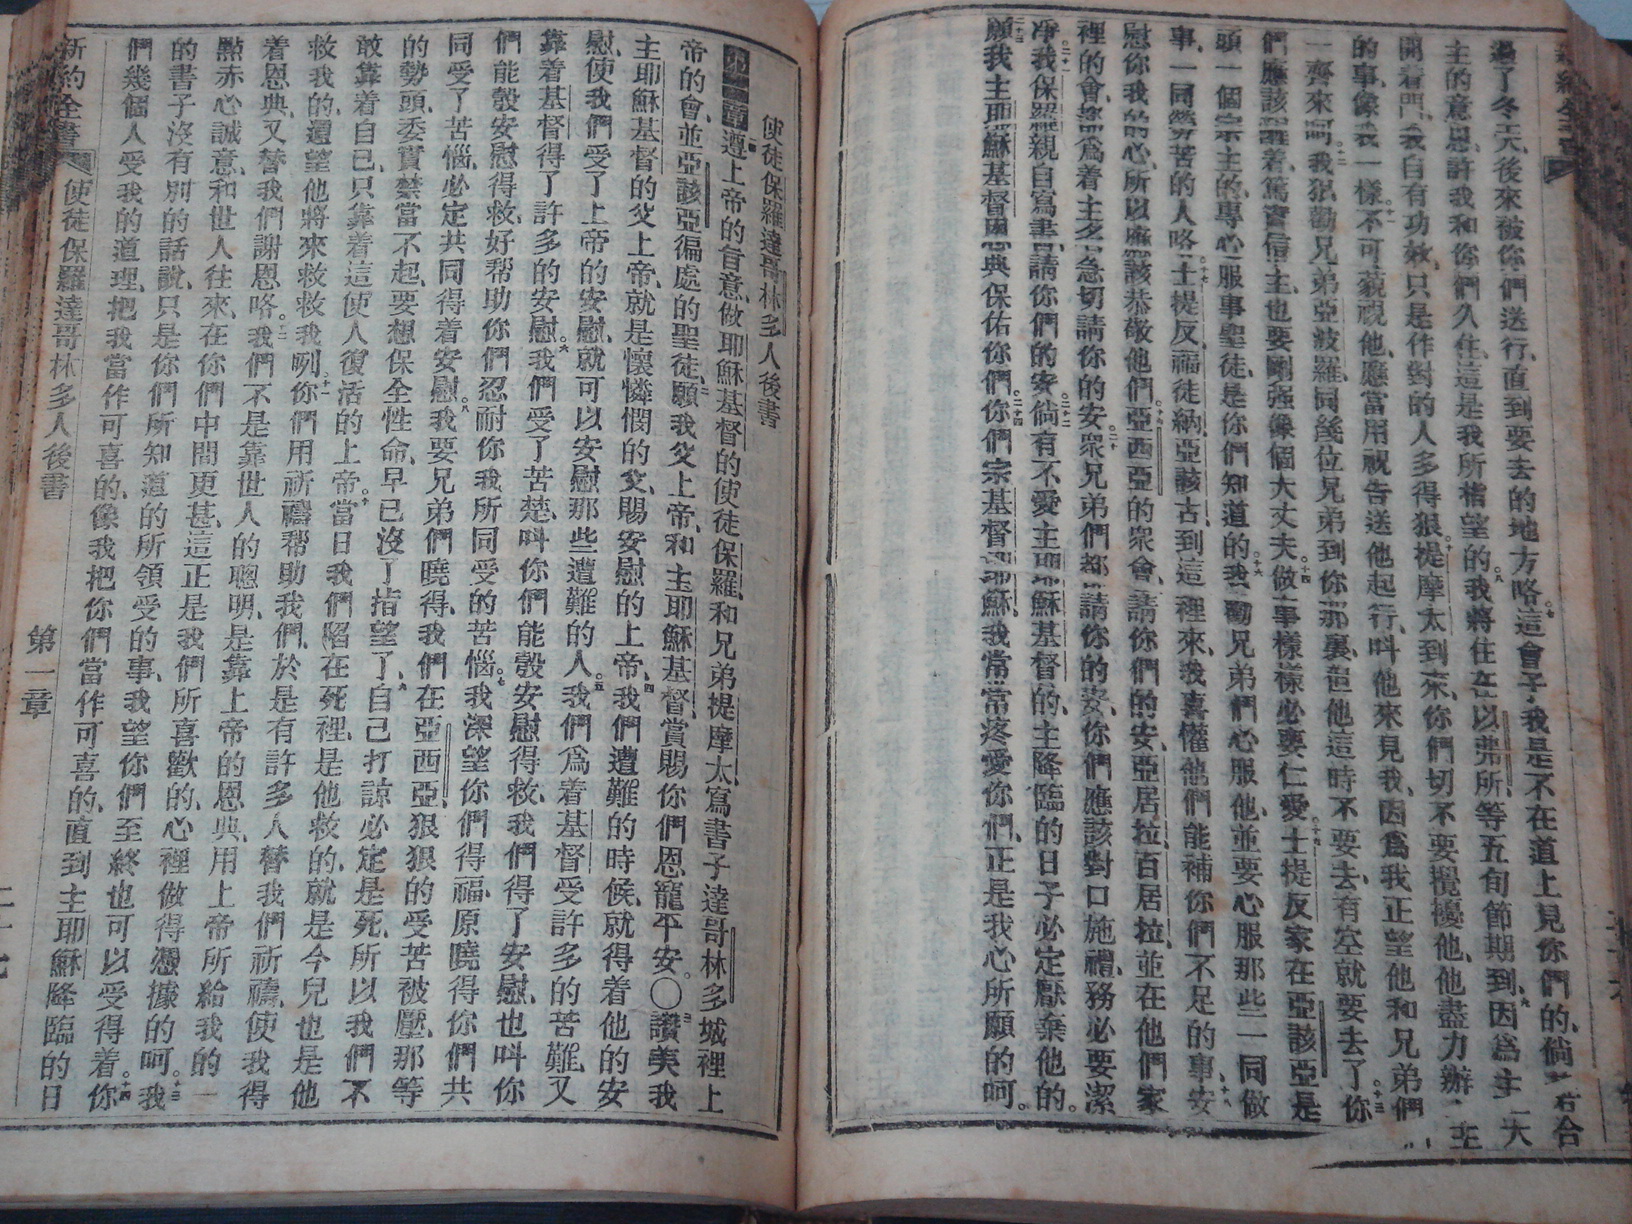 過了冬天、後來被你們送行、直到要去的地方略、這會子我是不在道上見你們的、倘若合
主的意思、許我和你們久住、這是我所指望的、我將住在以弗所、等五旬節期到、因為主大
開着門、我自有功效、只是作對的人多得狠、提摩太到來、你們切不要攪擾他、他盡力辦主
的事、像我一樣、不可藐視他、應當用祝告送他起行、叫他來見我、因為我正望他和兄弟們
一齊來呵、我狠勸兄弟亞波羅、同幾位兄弟到你那裏、但他這時不要去、有空就要去了、你
們應該謹着、篤實信主、也要剛强像個大丈夫、做事樣樣必要仁愛、士提反家在亞該亞是
頭一個宗主的、專心服事聖徒、是你們知道的、我勸兄弟們心服他、並要心服那些一同做
事、一同勞苦的人略、士提反、福徒納、亞該古、到這裡來、我喜懽他們能補你們不足的事、安
慰你我的心、所以應該恭敬他們、亞西亞的衆會、請你們的安、亞居拉、百居拉、並在他們家
裡的會、都為着主名、急切請你的安、衆兄弟們都請你的安、你們應該對口施禮、務必要潔
淨、我保羅親自寫書、請你們的安、倘有不愛主耶穌基督的、主降臨的日子必定厭棄他的。
願我主耶穌基督恩典保佑你們、你們宗基督耶穌、我常常疼愛你們、正是我心所願的呵。
使徒保羅達哥林多人後書
第一章遵上帝的旨意、做耶穌基督的使徒保羅、和兄弟提摩太、寫書子達哥林多城裡上
帝的會、並亞該亞徧處的聖徒、願我父上帝、和主耶穌基督、賞賜你們恩寵平安。○讚美我
主耶穌基督的父上帝、就是懷憐憫的父、賜安慰的上帝、我們遭難的時候、就得着他的安
慰、使我們受了上帝的安慰、就可以安慰那些遭難的人。我們為着基督受許多的苦難、又
靠着基督得了許多的安慰。我們受了苦楚、叫你們能彀安慰得救、我們得了安慰、也叫你
們能彀安慰得救、好帮助你們忍耐你我所同受的苦惱。我深望你們得福、原曉得你們共
同受了苦惱、必定共同得着安慰。我要兄弟們曉得、我們在亞西亞、狠狠的受苦被壓、那等
的勢頭、委實禁當不起、要想保全性命、早已沒了指望了、自己打諒必定是死、所以我們不
敢靠着自己、只靠着這使人復活的上帝。當日我們陷在死裡、是他救的、就是今兒也是他
救我的、還望他將來救救我咧、你們用祈禱帮助我們、於是有許多人替我們祈禱、使我得
着恩典、又替我們謝恩略。我們不是靠世人的聰明、是靠上帝的恩典、用上帝所給我的一
點赤心誠意、和世人往來、在你們中間更甚、這正是我們所喜歡的、心裡做得憑據的呵。我
的書子沒有別的話說、只是你們所知道的所領受的事、我望你們至終也可以受得着。你
們幾個人受我的道理、把我當作可喜的、像我把你們當作可喜的、直到主耶穌降臨的日
新約全書　使徒保羅達哥林多人後書　第一章